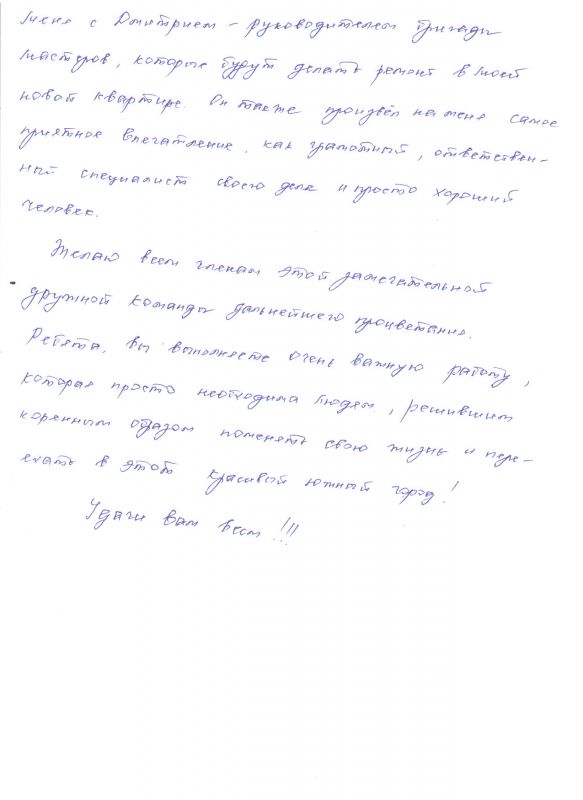 меня с Дмитрием - руководителем бригады
мастеров, которые будут делать ремонт в моей
новой квартире. Он также произвёл на меня самое
приятное впечатление, как грамотный, ответствен-
ный специалист своего дела и просто хороший
человек.
Желаю всем членам этой замечательной
дружной команды дальнейшего процветания.
Ребята, вы выполняете очень важную работу,
которая просто необходима людям, решившим
коренным образом поменять свою жизнь и пере-
ехать в этот красивый южный город!
Удачи вам всем!!!